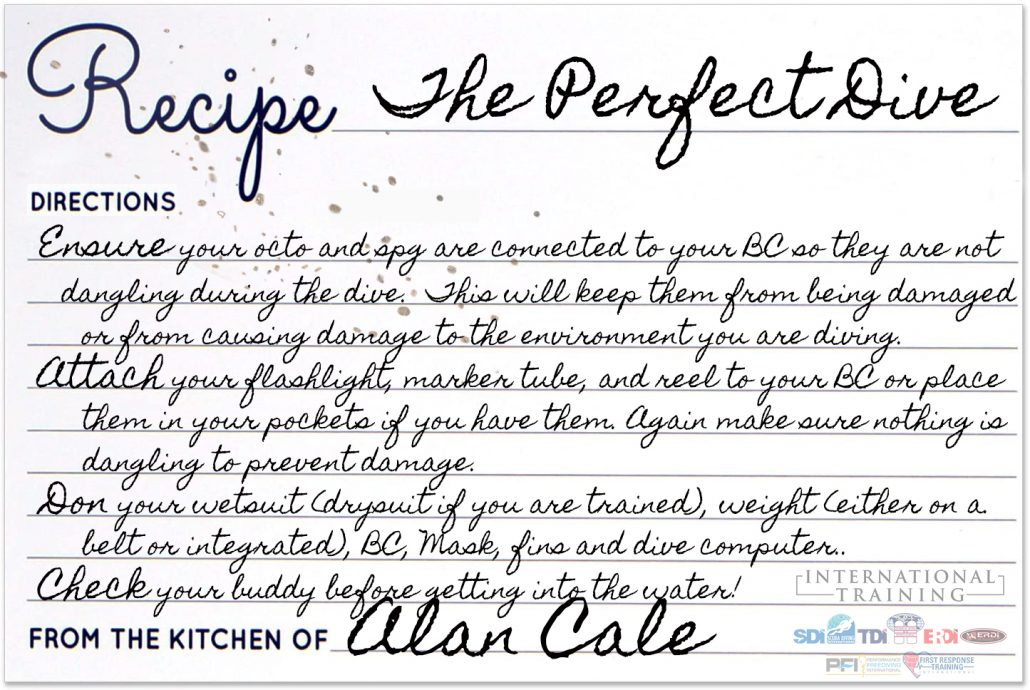 Recipe The Perfect Dive
DIRECTIONS
Ensure your octo and spg are connected to your BC so they are not
dangling during the dive. This will keep them from being damaged
or from causing damage to the environment you are diving.
Attach your flashlight, marker tube, and reel to your BC or place
them in your pockets if you have them. Again make sure nothing is
dangling to prevent damage.
Don your wetsuit (drysuit if you are trained), weight (either on a
belt or integrated), BC, Mask, fins and dive computer..
Check your buddy before getting into the water!
INTERNATIONAL
TRAINING
FROM THE KITCHEN OF Alan Cale
SDI SCUBA DIVING INTERNATIONAL TDI ERDI ERDI
PFI PERFORMANCE FREEDIVING INTERNATIONAL FIRST RESPONSE TRAINING INTERNATIONAL